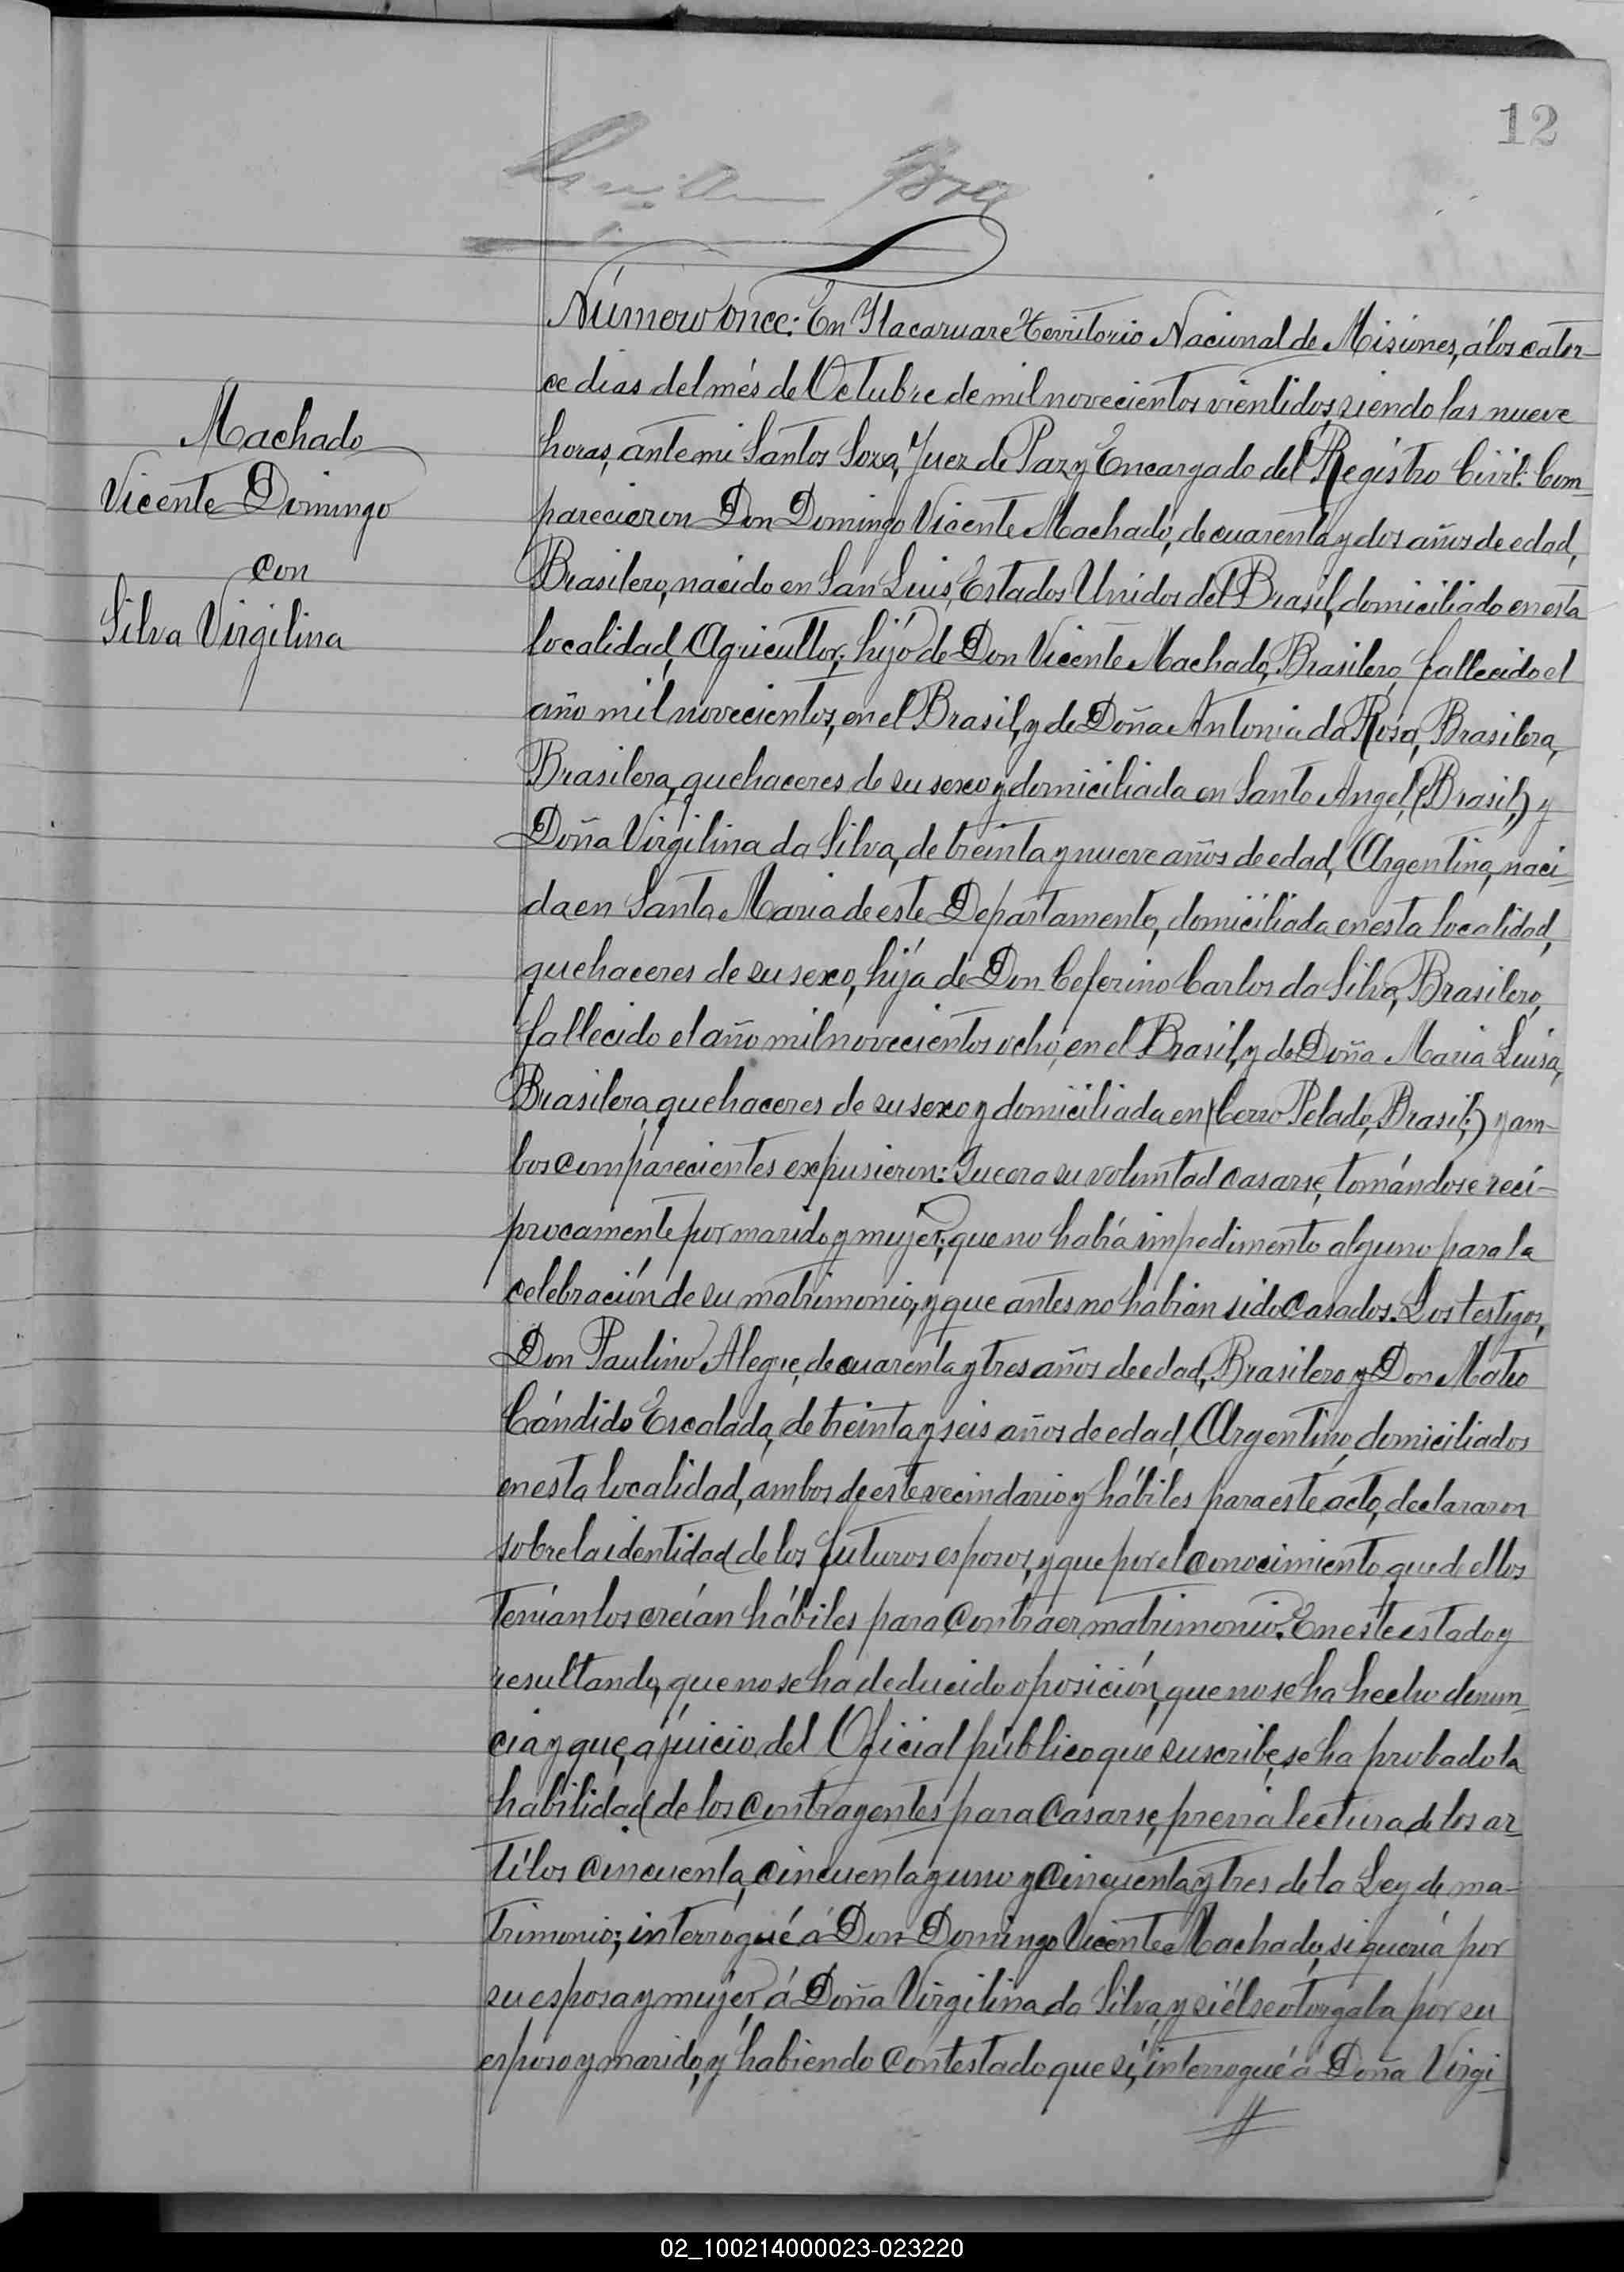 12
Número once: En Itacaruaré Territorio Nacional de Misiones, á los cator-
ce dias del més de Octubre de mil novecientos vientidos, siendo las nueve
Machado
horas, ante mi Santos Sosa, Juez de Paz y Encargado del Registro Civil: Com-
Vicente Domingo
parecieron Don Domingo Vicente Machado, de cuarenta y dos años de edad,
con
Brasilero, nacido en San Luis, Estados Unidos del Brasil, domiciliado en esta
Silva Virgilina
localidad, Agricultor, hijo de Don Vicente Machado, Brasilero, fallecido el
año mil novecientos, en el Brasil, y de Doña Antonia da Rosa, Brasilera,
Brasilera, quehaceres de su sexo y domiciliada en Santo Angel, (Brasil,) y
Doña Virgilina da Silva, de treinta y nueve años de edad, Argentina, naci-
da en Santa Maria de este Departamento, domiciliada en esta localidad,
quehaceres de su sexo, hija de Don Ceferino Carlos da Silva, Brasilero,
fallecido el año mil novecientos ocho, en el Brasil, y de Doña Maria Luisa,
Brasilera, quehaceres de su sexo y domiciliada en (Cerro Pelado, Brasil;) y am-
bos comparecientes expusieron: Que era su voluntad casarse, tomándose recí-
procamente por marido y mujer; que no había impedimento alguno para la
celebración de su matrimonio, y que antes no habian sido Casados. Los testigos,
Don Paulino Alegre, de cuarenta y tres años de edad, Brasilero y Don Mateo
Cándido Escalada, de treinta y seis años de edad, Argentino, domiciliados
en esta localidad, ambos de este vecindario y hábiles para este acto, declararon
sobre la identidad de los futuros esposos, y que por el conocimiento que de ellos
tenían los creían hábiles para Contraer matrimonio. En este estado y
resultando, que no se ha deducido oposición, que no se ha hecho denun-
cia y que, a juicio del Oficial público que suscribe, se ha probado la
habilidad de los Contrayentes para Casarse, previa lectura de los ar-
tilos Cincuenta, Cincuenta y uno y Cincuenta y tres de la Ley de ma-
trimonio; interrogué á Don Domingo Vicente Machado, si quería por
su esposa y mujer á Doña Virgilina da Silva, y si él se otorgaba por su
esposo y marido, y habiendo Contestado que sí, interrogué á Doña Virgi-
02_100214000023-023220